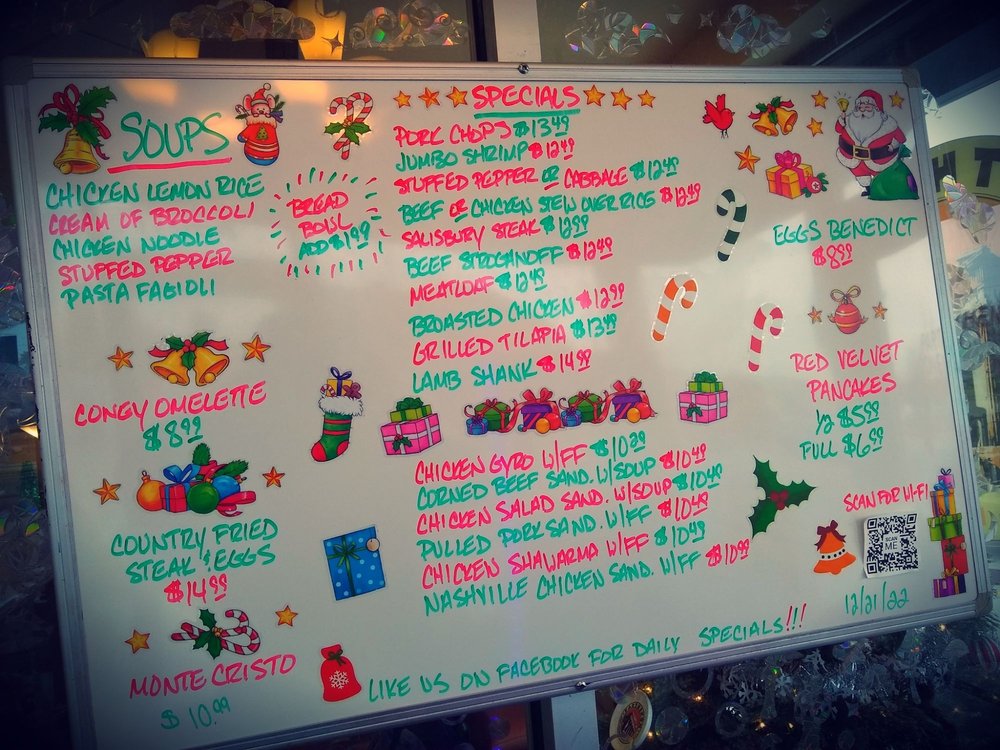 SOUPS
CHICKEN LEMON RICE
CREAM OF BROCCOLI
CHICKEN NOODLE
STUFFED PEPPER
PASTA FAGIOLI
BREAD
BOWL
ADD $1.99
CONEY OMELETTE
$8.99
COUNTRY FRIED
STEAK & EGGS
$14.99
MONTE CRISTO
$10.99
SPECIALS
PORK CHOPS $13.49
JUMBO SHRIMP $12.49
STUFFED PEPPER OR CABBAGE $12.49
BEEF OR CHICKEN STEW OVER RICE $12.49
SALISBURY STEAK $12.99
BEEF STROGANOFF $12.49
MEATLOAF $12.49
BROASTED CHICKEN $12.99
GRILLED TILAPIA $13.49
LAMB SHANK $14.99
CHICKEN GYRO W/FF $10.29
CORNED BEEF SAND. W/SOUP $10.49
CHICKEN SALAD SAND. W/SOUP $10.49
PULLED PORK SAND. W/FF $10.49
CHICKEN SHAWARMA W/FF $10.49
NASHVILLE CHICKEN SAND. W/FF $10.99
EGGS BENEDICT
$8.99
RED VELVET
PANCAKES
1/2 $5.99
FULL $6.99
SCAN FOR WI-FI
SCAN
ME
12/21/22
LIKE US ON FACEBOOK FOR DAILY SPECIALS!!!